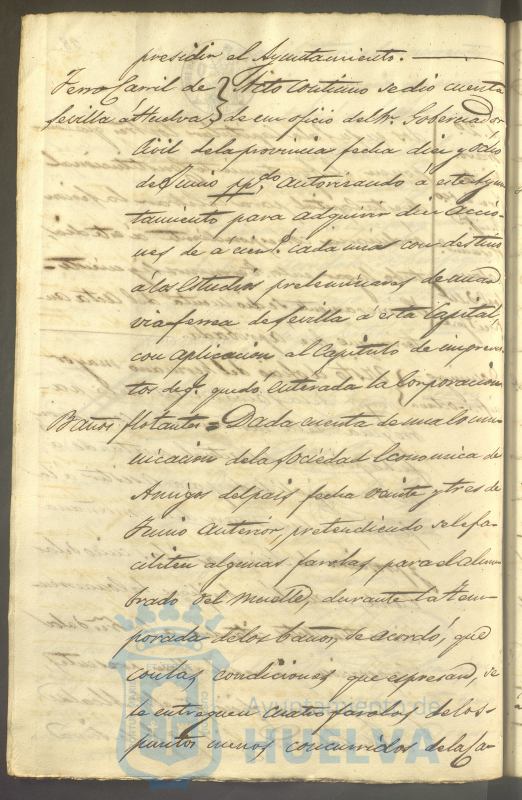 presidir el Ayuntamiento.
Ferro Carril de } Acto continuo se dio cuenta
Sevilla á Huelva } de un oficio del Sr. Gobernador
Civil de la provincia fecha diez y ocho
de Junio pp.do autorizando á este Ayun-
tamiento para adquirir diez Accio-
nes de á cien r.s cada una con destino
á los Estudios preliminares de una
via-ferrea de Sevilla á esta Capital
con aplicacion al Capitulo de imprevis-
tos de q.e quedó enterada la Corporacion
Baños flotantes = Dada cuenta de una comu-
nicacion de la Sociedad Economica de
Amigos del pais fecha veinte y tres de
Junio anterior, pretendiendo se le fa-
ciliten algunas farolas, para el alum-
brado del muelle, durante la tem-
porada de los baños, se acordó, que
con las condiciones que espresan, se
le entreguen cuatro farolas de los
puntos menos concurridos de la Ca-
Ayuntamiento de
HUELVA